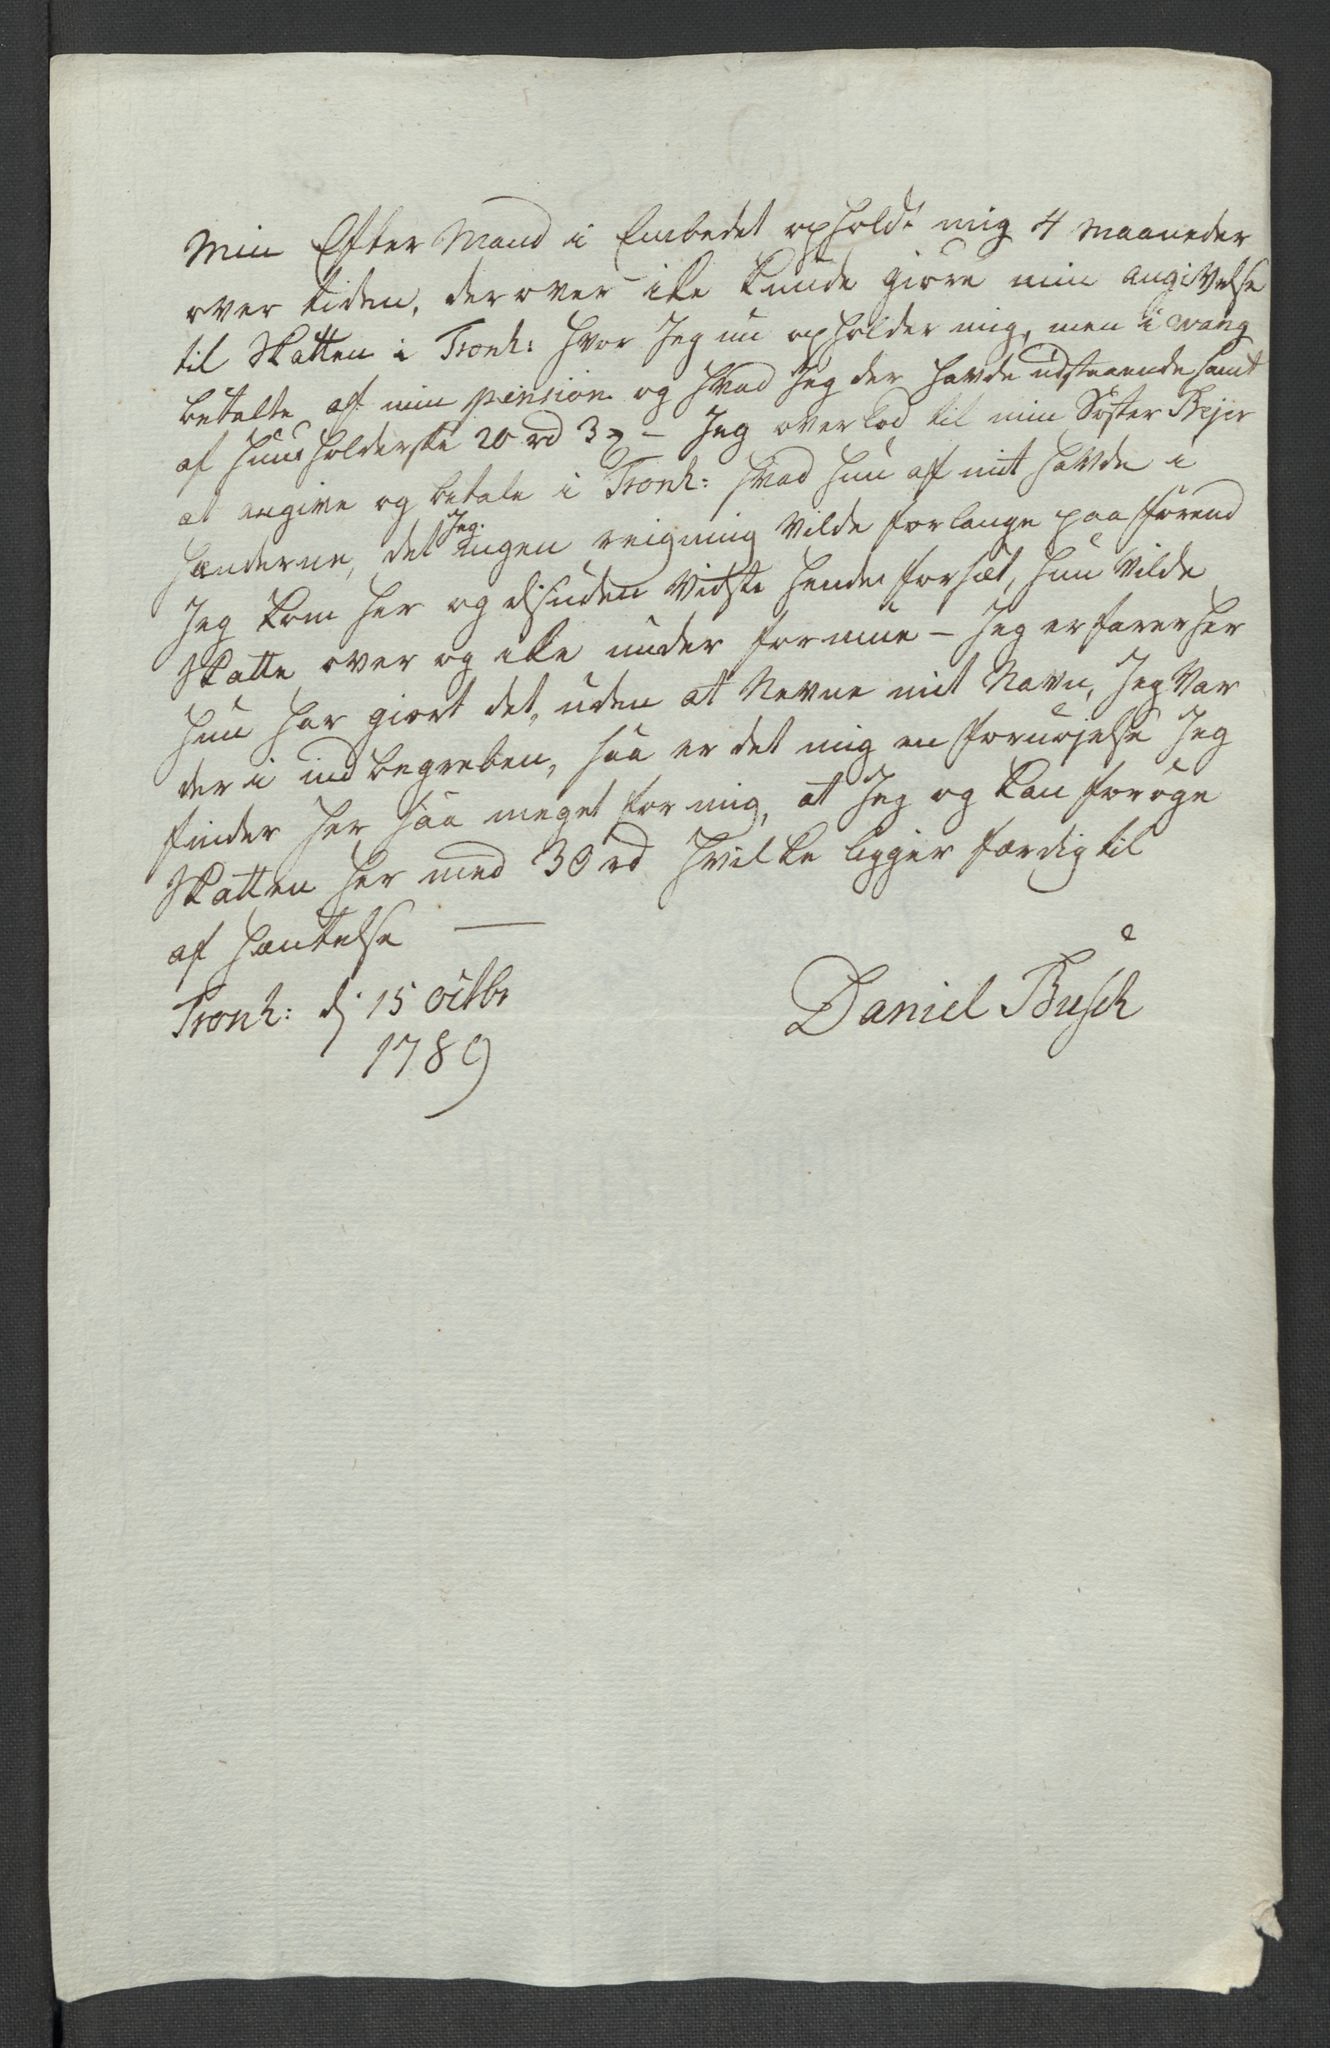 Min Efter Mand i Embedet opholdt mig 4 Maaneder
over tiden, derover ike kunde giøre min Angivelse
til Skatten i Tronh: hvor Jeg nu opholder mig, men i Wang
betalte af min pension og hvad Jeg der havde udstaaende samt
af Huusholderske 20 rd 3 ß – Jeg overlod til min Søster Bejer
at angive og betale i Tronh: hvad hun af mit havde i
Hænderne, det Jeg ingen reigning vilde forlange paa førend
Jeg kom her og desuden vidste hendes forsæt, hun vilde
skatte over og ike under formue – Jeg erfarer her
hun har giort det, uden at Nevne mit Navn, Jeg var
deri indbegreben, saa er det mig en fornøjelse Jeg
finder her saa meget for mig, at Jeg og kan forøge
Skatten her med 30 rd hvilke ligger færdig til
afhæntelse —
Tronh: d: 15 Octbr
1789
Daniel Busch